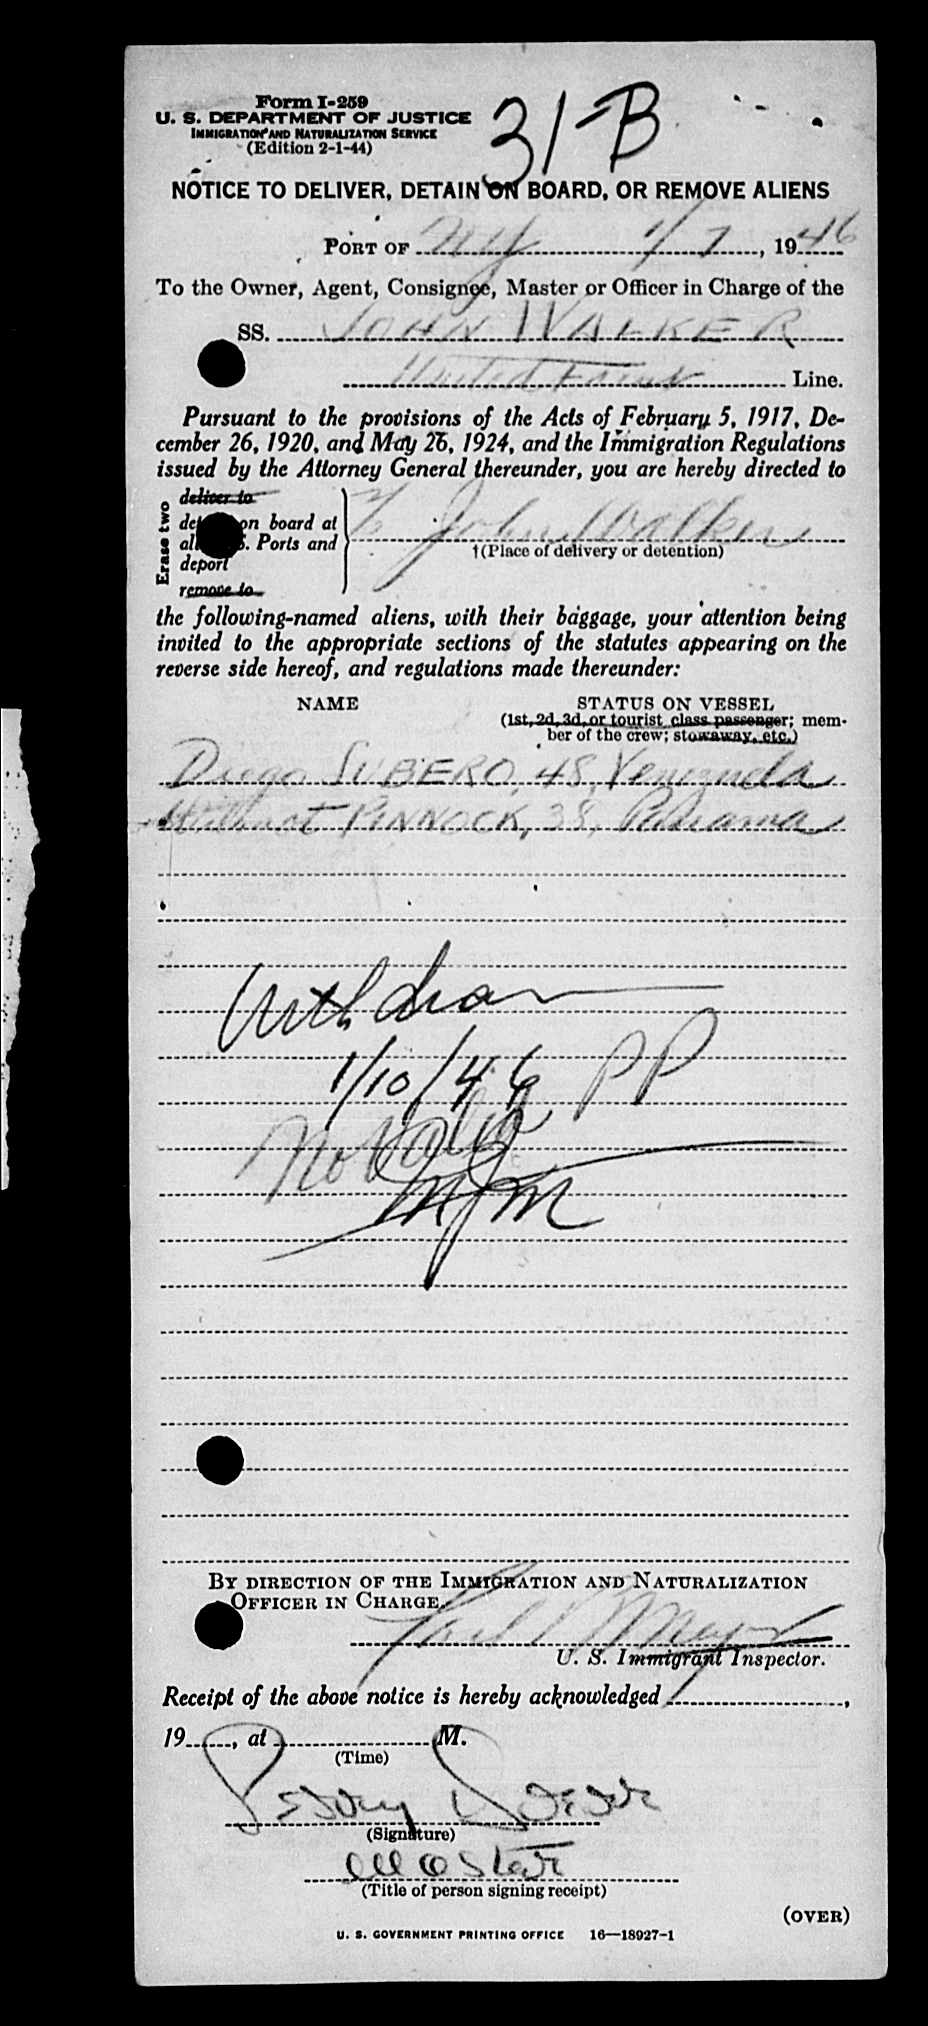 Form I-259
U. S. DEPARTMENT OF JUSTICE
IMMIGRATION AND NATURALIZATION SERVICE
(Edition 2-1-44)
31-B
NOTICE TO DELIVER, DETAIN ON BOARD, OR REMOVE ALIENS
PORT OF NY 1/7, 1946
To the Owner, Agent, Consignee, Master or Officer in Charge of the
SS. JOHN WALKER
United Fruit Line.
Pursuant to the provisions of the Acts of February 5, 1917, De-
cember 26, 1920, and May 26, 1924, and the Immigration Regulations
issued by the Attorney General thereunder, you are hereby directed to
Erase two
deliver to
on board at
S. Ports and
John Walker
deport
†(Place of delivery or detention)
remove to
the following-named aliens, with their baggage, your attention being
invited to the appropriate sections of the statutes appearing on the
reverse side hereof, and regulations made thereunder:
NAME STATUS ON VESSEL
(1st, 2d, 3d, or tourist class passenger; mem-
ber of the crew; stowaway, etc.)
Diego SUBERO, 48, Venezuela
PINNOCK, 38, Panama
Withdrawn
1/10/46 PP
MJM
BY DIRECTION OF THE IMMIGRATION AND NATURALIZATION
OFFICER IN CHARGE.
U. S. Immigrant Inspector.
Receipt of the above notice is hereby acknowledged ,
19 , at M.
(Time)
(Signature)
Master
(Title of person signing receipt)
(OVER)
U. S. GOVERNMENT PRINTING OFFICE 16—18927-1